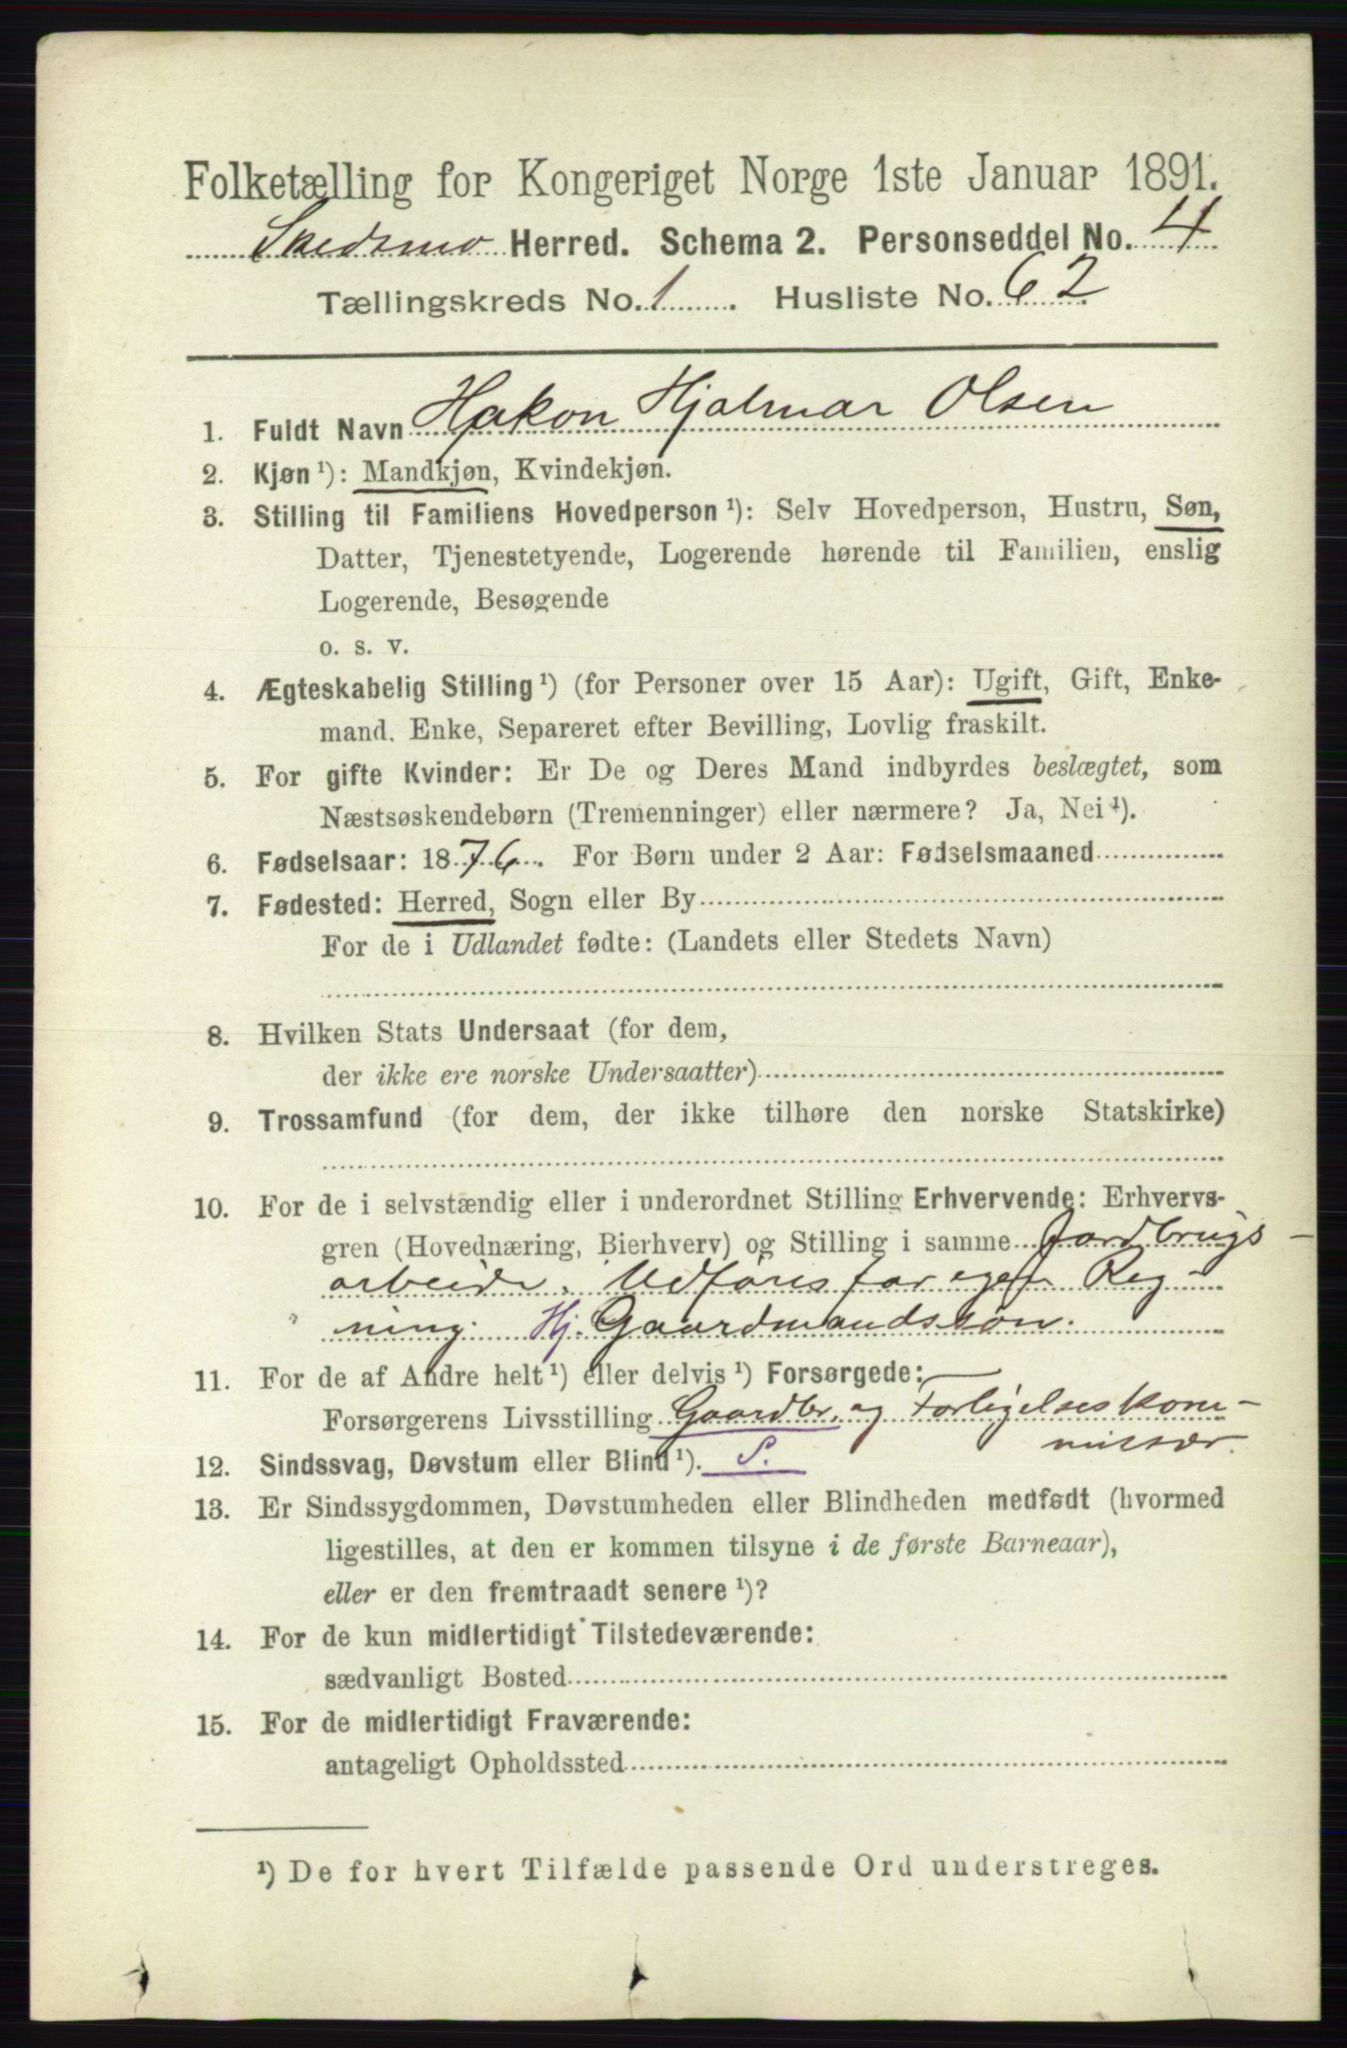 Folketælling for Kongeriget Norge 1ste Januar 1891.
Skedsmo Herred. Schema 2. Personseddel No. 4
Tællingskreds No. 1. Husliste No. 62
1. Fuldt Navn Hakon Hjalmar Olsen
2. Kjøn ¹): Mandkjøn, Kvindekjøn.
3. Stilling til Familiens Hovedperson ¹): Selv Hovedperson, Hustru, Søn,
Datter, Tjenestetyende, Logerende hørende til Familien, enslig
Logerende, Besøgende
o. s. v.
4. Ægteskabelig Stilling ¹) (for Personer over 15 Aar): Ugift, Gift, Enke-
mand. Enke, Separeret efter Bevilling, Lovlig fraskilt.
5. For gifte Kvinder: Er De og Deres Mand indbyrdes beslægtet, som
Næstsøskendebørn (Tremenninger) eller nærmere? Ja, Nei ¹).
6. Fødselsaar: 1876. For Børn under 2 Aar: Fødselsmaaned
7. Fødested: Herred, Sogn eller By
For de i Udlandet fødte: (Landets eller Stedets Navn)
8. Hvilken Stats Undersaat (for dem,
der ikke ere norske Undersaatter)
9. Trossamfund (for dem, der ikke tilhøre den norske Statskirke)
10. For de i selvstændig eller i underordnet Stilling Erhvervende: Erhvervs-
gren (Hovednæring, Bierhverv) og Stilling i samme Jordbrugs-
arbeide. Udføres for egen Reg-
ning. Hj. Gaardmandssøn.
11. For de af Andre helt ¹) eller delvis ¹) Forsørgede:
Forsørgerens Livsstilling Gaardbr. og Forligelseskom-
missær.
12. Sindssvag, Døvstum eller Blind ¹). S.
13. Er Sindssygdommen, Døvstumheden eller Blindheden medfødt (hvormed
ligestilles, at den er kommen tilsyne i de første Barneaar),
eller er den fremtraadt senere ¹)?
14. For de kun midlertidigt Tilstedeværende:
sædvanligt Bosted
15. For de midlertidigt Fraværende:
antageligt Opholdssted
¹) De for hvert Tilfælde passende Ord understreges.